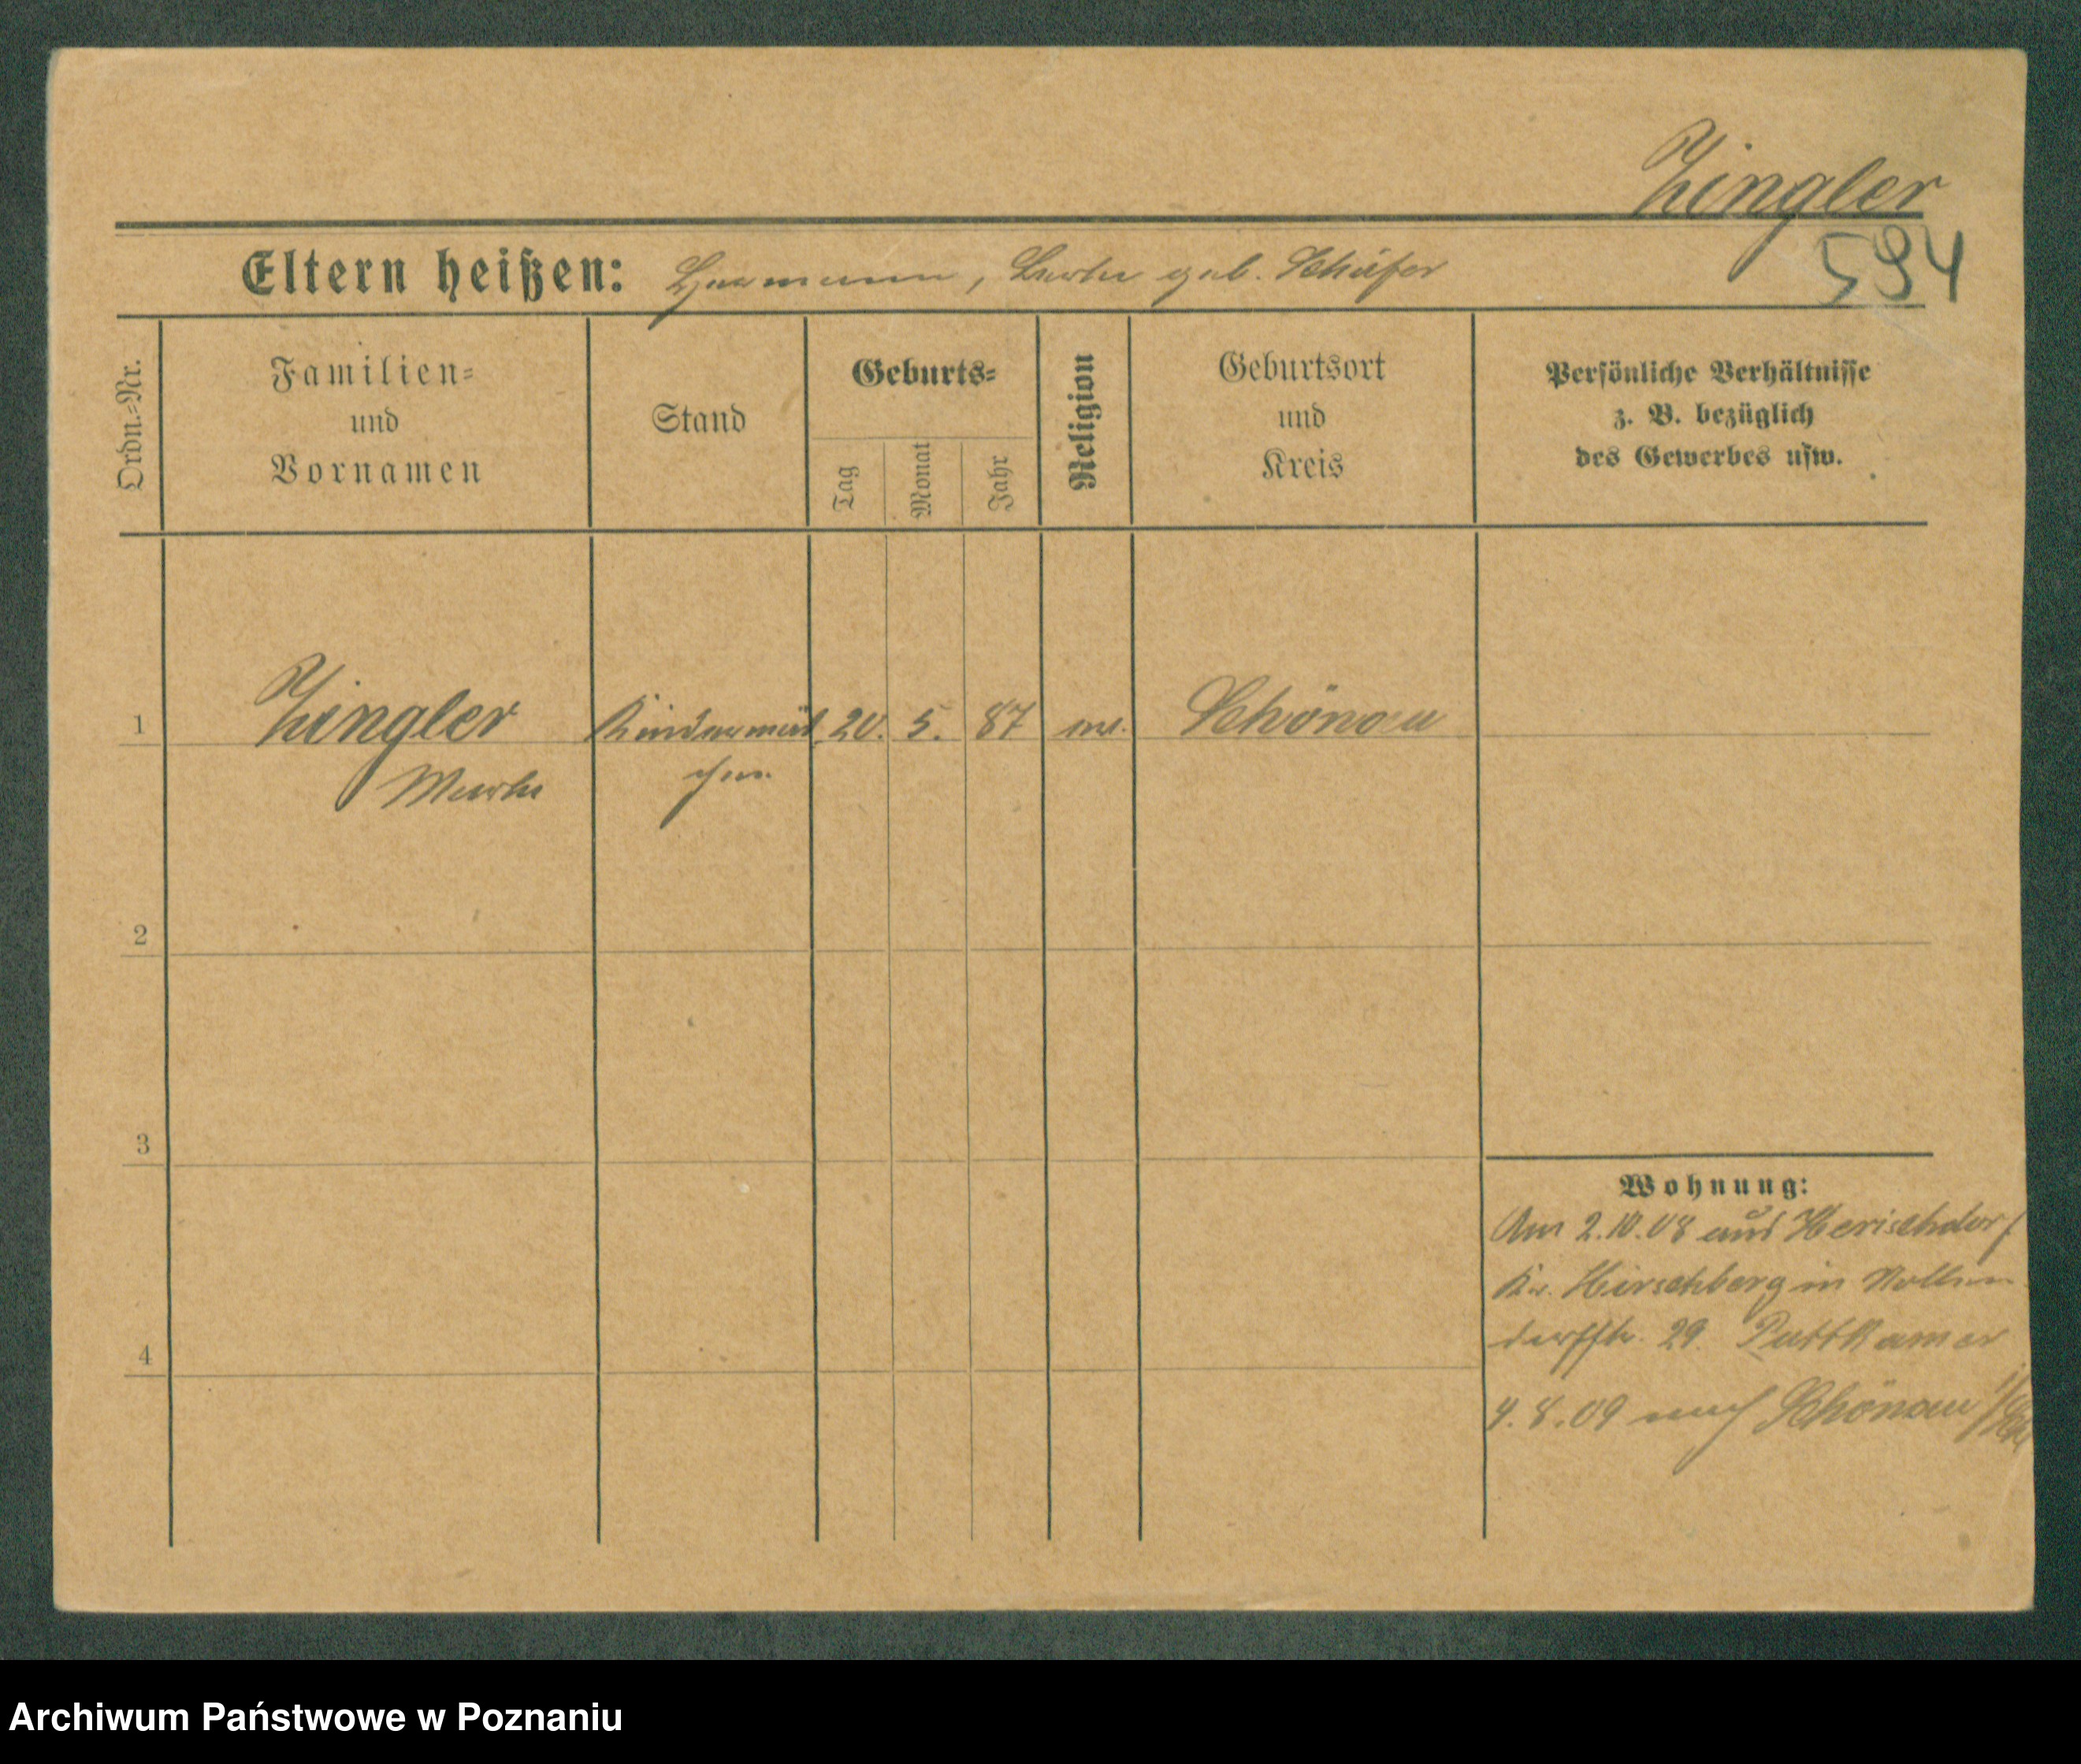 Zingler
594
Eltern heißen: Hermann, Berta geb. Schäfer
Ordn.-Nr.
Familien-
und
Vornamen
Stand
Geburts-
Tag
Monat
Jahr
Religion
Geburtsort
und
Kreis
Persönliche Verhältnisse
z. B. bezüglich
des Gewerbes usw.
1 Zingler Kindermäd 20. 5. 87 Schönau
chen
2
3
Wohnung:
Am 2.10.08 aus Herischdorf
Kr. Hirschberg in Nollen
dorffstr. 29. Puttkamer
4
4.8.09 nach Schönau
Archiwum Państwowe w Poznaniu